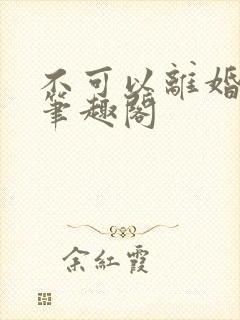 不可以離婚
筆趣閣
余紅霞